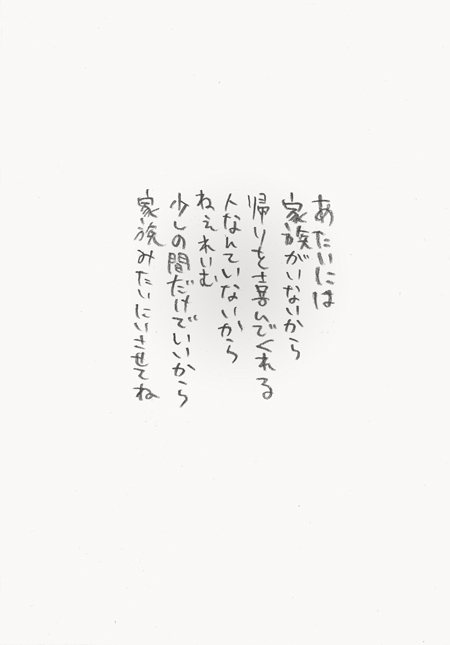 あたいには
家族がいないから
帰りを喜んでくれる
人なんていないから
ねぇれいむ
少しの間だけでいいから
家族みたいにいさせてね